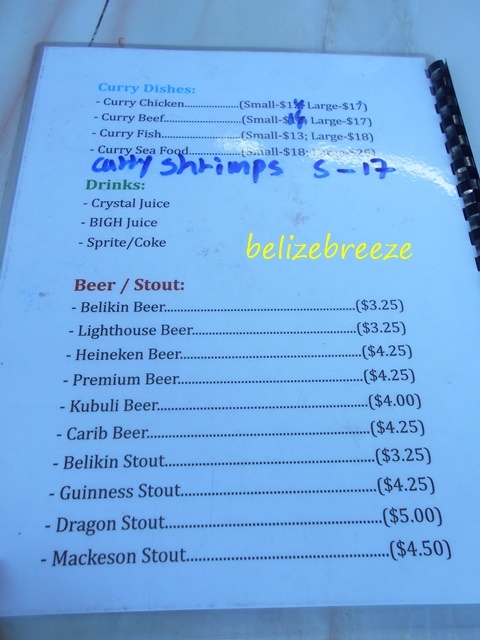 Curry Dishes:
- Curry Chicken....................(Small-$1 Large-$17)
- Curry Beef.........................(Small-$ Large-$17)
- Curry Fish..........................(Small-$13; Large-$18)
- Curry Sea Food..................(Small-$18; Large-$25)
curry shrimps S-17
Drinks:
- Crystal Juice
- BIGH Juice
- Sprite/Coke
belizebreeze
Beer / Stout:
- Belikin Beer................................................($3.25)
- Lighthouse Beer.........................................($3.25)
- Heineken Beer............................................($4.25)
- Premium Beer.............................................($4.25)
- Kubuli Beer.................................................($4.00)
- Carib Beer...................................................($4.25)
- Belikin Stout...............................................($3.25)
- Guinness Stout...........................................($4.25)
- Dragon Stout..............................................($5.00)
- Mackeson Stout..........................................($4.50)